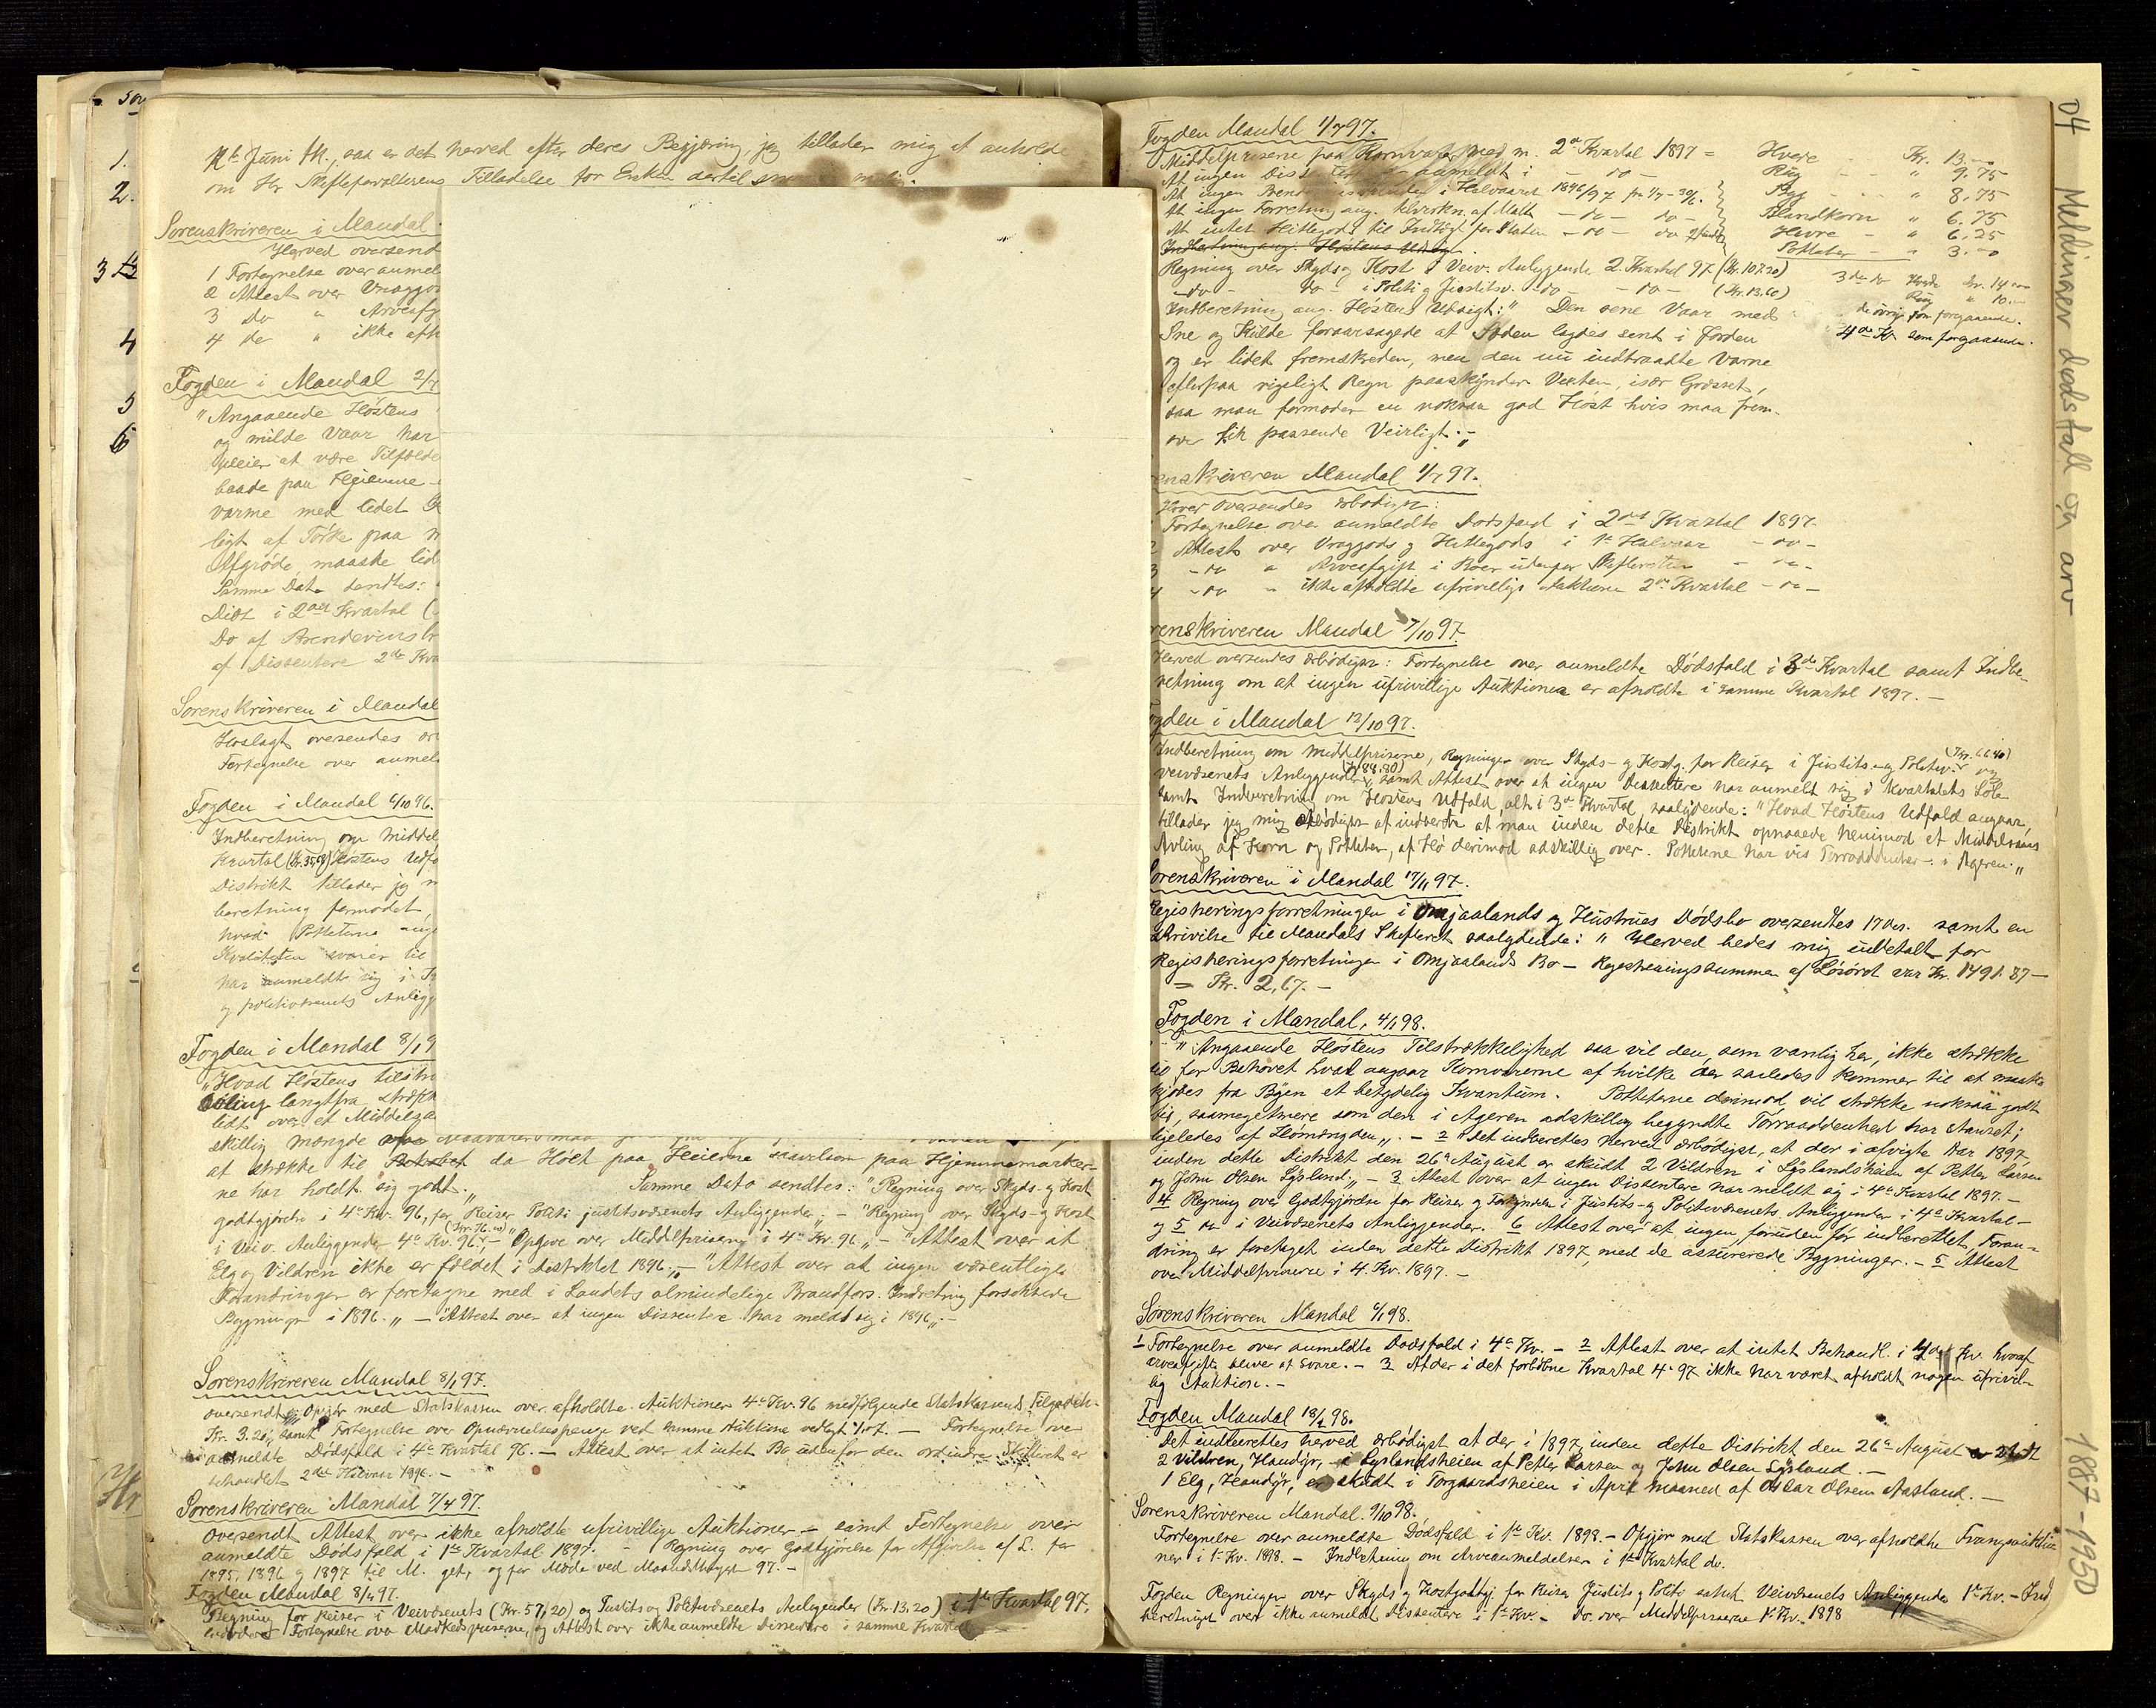 12te Juni sk., saa er det herved efter deres Begjæring, jeg tillader mig at anholde
om Hr Skifteforvalterens Tilladelse for Enken dertil
Sorenskriveren i Mandal
Herved oversend
1 Fortegnelse over anmel
2 Attest over Vraggo
3 Do " Arveafg
4 do " ikke afh
Fogden i Mandal 2/7
"Angaaende Höstens
og milde Vaar har
pleier at være Tilfælde
baade paa Heiene
varme med lidet
ligt af Törke paa
Afgröde, maaske lid
Samme Dato sendtes:
Didt i 2det Kvartal
Do af Brendevinsbr
af Dissentere 2det Kva
Sorenskriveren i Mandal
Hoslagt oversendes ær
Fortegnelse over anmel
Fogden i Mandal 6/10 96.
Indberetning om Middel
Kvartal (Kr. 35,68) Höstens Udfa
Distrikt tillader jeg m
beretning formodet,
hvad Potteterne ang
Kvaliteten svarer til
har anmeldt sig i
og politivæsenets Anligg
Fogden i Mandal 8/1 9
"Hvad Höstens tilstr
Avling langtfra strækk
lidt over et Middelsaa
skillig mængde
at strække til Behovet da Höet paa Heierne saavelsom paa Hjemmemarker-
ne har holdt sig godt. „ Samme Dato sendtes: "Regning over Skyds- og Kost
godtgjörelse i 4de Kv. 96, for Reiser Politi justitsvæsenets Anliggender; - "Regning over Skyds- og Kost
i Veiv. Anliggender 4de Kv. 96 „ - "Opgave over Middelpriserne i 4de Kv. 96 „ - "Attest over at
Elg og Vildren ikke er fældet i Distriktet 1896 „ - "Attest over at ingen væsentlige
Forandringer er foretagne med i Landets almindelige Brandfors. Indretning forsikrede
Bygninger i 1896. „ - "Attest over at ingen Dissentere har meldt sig i 1896 „ -
Sorenskriveren Mandal 8/1 97.
oversendt Opgjör med Statskassen over afholdte Auktioner 4de Kv. 96 medfölgende Statskassens Tilgodeh.
Kr. 3.20, samt Fortegnelse over Opnævnelsespenge ved samme Auktione vedlagt - Fortegnelse over
anmeldte Dödsfald i 4de Kvartal 96. - Attest over at intet Bo udenfor den ordinære Skifteret er
behandlet 2det Halvaar 1896. -
Sorenskriveren Mandal 7/4 97.
Oversendt Attest over ikke afholdte ufrivillige Auktioner - samt Fortegnelse over
anmeldte Dödsfald i 1ste Kvartal 1897. - Regning over Godtgjörelse for Afgivelse af L. for
1895, 1896 og 1897 til M. get, og for Möde ved Maanedstinget 97. -
Fogden Mandal 8/4 97.
Regning for Reiser i Veivæsenets (Kr. 57,20) og Justits og Politivæsenets Anliggender (Kr 13.20) i 1ste Kvartal 97,
Fortegnelse over Markedspriserne, og Attest over ikke anmeldte Dissentere i samme Kvartal
Fogden Mandal 1/7 97.
Middelpriserne paa Kornvarer med m. 2det Kvartal 1897 = Hvede - Kr. 13.-
At ingen Dissentere anmeldt i - do - Rug - " 9.75
At ingen Brend i Halvaaret 1896/97 fra 1/7 - 30/6. Byg - " 8.75
At ingen Forretning ang. tilvirkn. af Malt - do - do - Blandkorn " 6.75
At intet Hittegods til Indtægt for Staten - do - do Havre - " 6.25
Indberetning ang. Höstens Udsigt. Potteter - " 3.-
Regning over Skyds og Kost i Veiv. Anliggende 2. Kvartal 97 (Kr. 107.20)
- do - do - i Politi og Justitsv. - do - - do - (Kr. 13.60)
3die do Hvede Kr. 14.-
Rug " 10.-
de övrige som forgaaende.
4de Kv. som forgaaende.
Indberetning ang. Höstens Udsigt: "Den sene Vaar med
Sne og Kulde foraarsagede at Sæden lagdes sent i Jorden
og er lidet fremskreden, men den nu indtraadte Varme
efterpaa rigeligt Regn paaskynder Væxten, især Græsset,
saa man formoder en noksaa god Höst hvis maa frem-
over fik passende Veirligt. - „
enskriveren Mandal 1/7 97.
Hver oversendes ærbödigst:
Fortegnelse over anmeldte Dödsfald i 2det Kvartal 1897.
2 Attest over Vraggods og Hittegods i 1ste Halvaar - do -
3 - do " Arveafgift i Boer udenfor Skifteretten - do -
4 - do " ikke afholdte ufrivillige Auktioner 2det Kvartal - do -
renskriveren Mandal 7/10 97.
Herved oversendes ærbödigst: Fortegnelse over anmeldte Dödsfald i 3die Kvartal samt Indbe-
retning om at ingen ufrivillige Auktioner er afholdte i samme Kvartal 1897. -
ogden i Mandal 12/10 97.
Indberetning om Middelpriserne, Regninger over Skyds- og Kostg. for Reiser i Justits- og Politiv. (Kr. 66.40) og
veivæsenets Anliggender (Kr 88.80) samt Attest over at ingen Dissentere har anmeldt sig i Kvartalets Löb
samt Indberetning om Höstens Udfald, alt i 3die Kvartal, saalydende: "Hvad Höstens Udfald angaar,
tillader jeg mig ærbödigst at indberette at man inden dette Distrikt opnaaede henimod et Middelsaars
Avling af Korn og Potteter, af Hö derimod adskillig over. Potteterne har vis Törraaddenhed i Ageren. „
Sorenskriveren i Mandal 17/11 97.
Registreringsforretningen i Omjaalands og Hustrues Dödsbo oversendtes 17 ds. samt en
skrivelse til Mandals Skifteret saalydende: "Herved bedes mig udbetalt for
Registreringsforretningen i Omjaalands Bo - Registreringssummen af Lösöret var Kr. 1491.87 -
= Kr. 2,67. -
Fogden i Mandal, 4/1 98.
"Angaaende Höstens Tilstrækkelighed saa vil den, som vanlig her, ikke strække
til for Behovet hvad angaar Kornvarerne af hvilke der saaledes kommer til at maatte
kjöbes fra Byen et betydelig Kvantum. Potteterne derimod, vil strække noksaa godt
til, saameget mere som den i Ageren adskillig begyndte Törraaddenhed har standset;
ligeledes af Hömængden „. - 2 "Det indberettes herved ærbödigst, at der i afvigte Aar 1897
inden dette Distrikt den 26de August er skudt 2 Vildren i Lyslandsheien af Petter Larsen
og John Olsen Lysland „ - 3 Attest over at ingen Dissentere har meldt sig i 4de Kvartal 1897. -
4 Regning over Godtgjörelse for Reiser og Forhandler i Justits- og Politivæsenets Anliggender i 4de Kvartal -
og 5 do i Veivæsenets Anliggender. 6 Attest over at ingen, foruden för indberettet, Foran-
dring er foretaget inden dette Distrikt 1897, med de assurerede Bygninger. - 5 Attest
over Middelpriserne i 4. Kv. 1897. -
Sorenskriveren Mandal 6/1 98.
1 Fortegnelse over anmeldte Dödsfald i 4de Kv. - 2 Attest over at intet Behandl. i 4de Kv. hvoraf
arveafgift bliver at svare. - 3 At der i det forlöbne Kvartal 4. 97 ikke har været afholdt nogen ufrivil-
lig Auktion. -
Fogden Mandal 18/1 98.
Det indberettes herved ærbödigst at der i 1897, inden dette Distrikt den 26de August er skudt
2 Vildren, Handyr, - i Lyslandsheien af Petter Larsen og John Olsen Lysland. -
1 Elg, Handyr, er skudt i Torgaardsheien i April maaned af Oskar Olsen Aasland. -
Sorenskriveren Mandal. 9/10 98.
Fortegnelse over anmeldte Dödsfald i 1ste Kv. 1898. - Opgjör med Statskassen over afholdte Tvangsauktio-
ner i 1. Kv. 1898. - Indberetning om Arveanmeldelser i 1ste Kvartal do.
Fogden Regninger over Skyds og Kostgodtgj. for Reiser Justits og Politi samt Veivæsenets Anliggender 1ste Kv. - Ind
beretninger over ikke anmeldt Dissentere i 1ste Kv. - Do. over Middelpriserne 1ste Kv. 1898
04 Meldinger dødsfall og arv
1887-1950